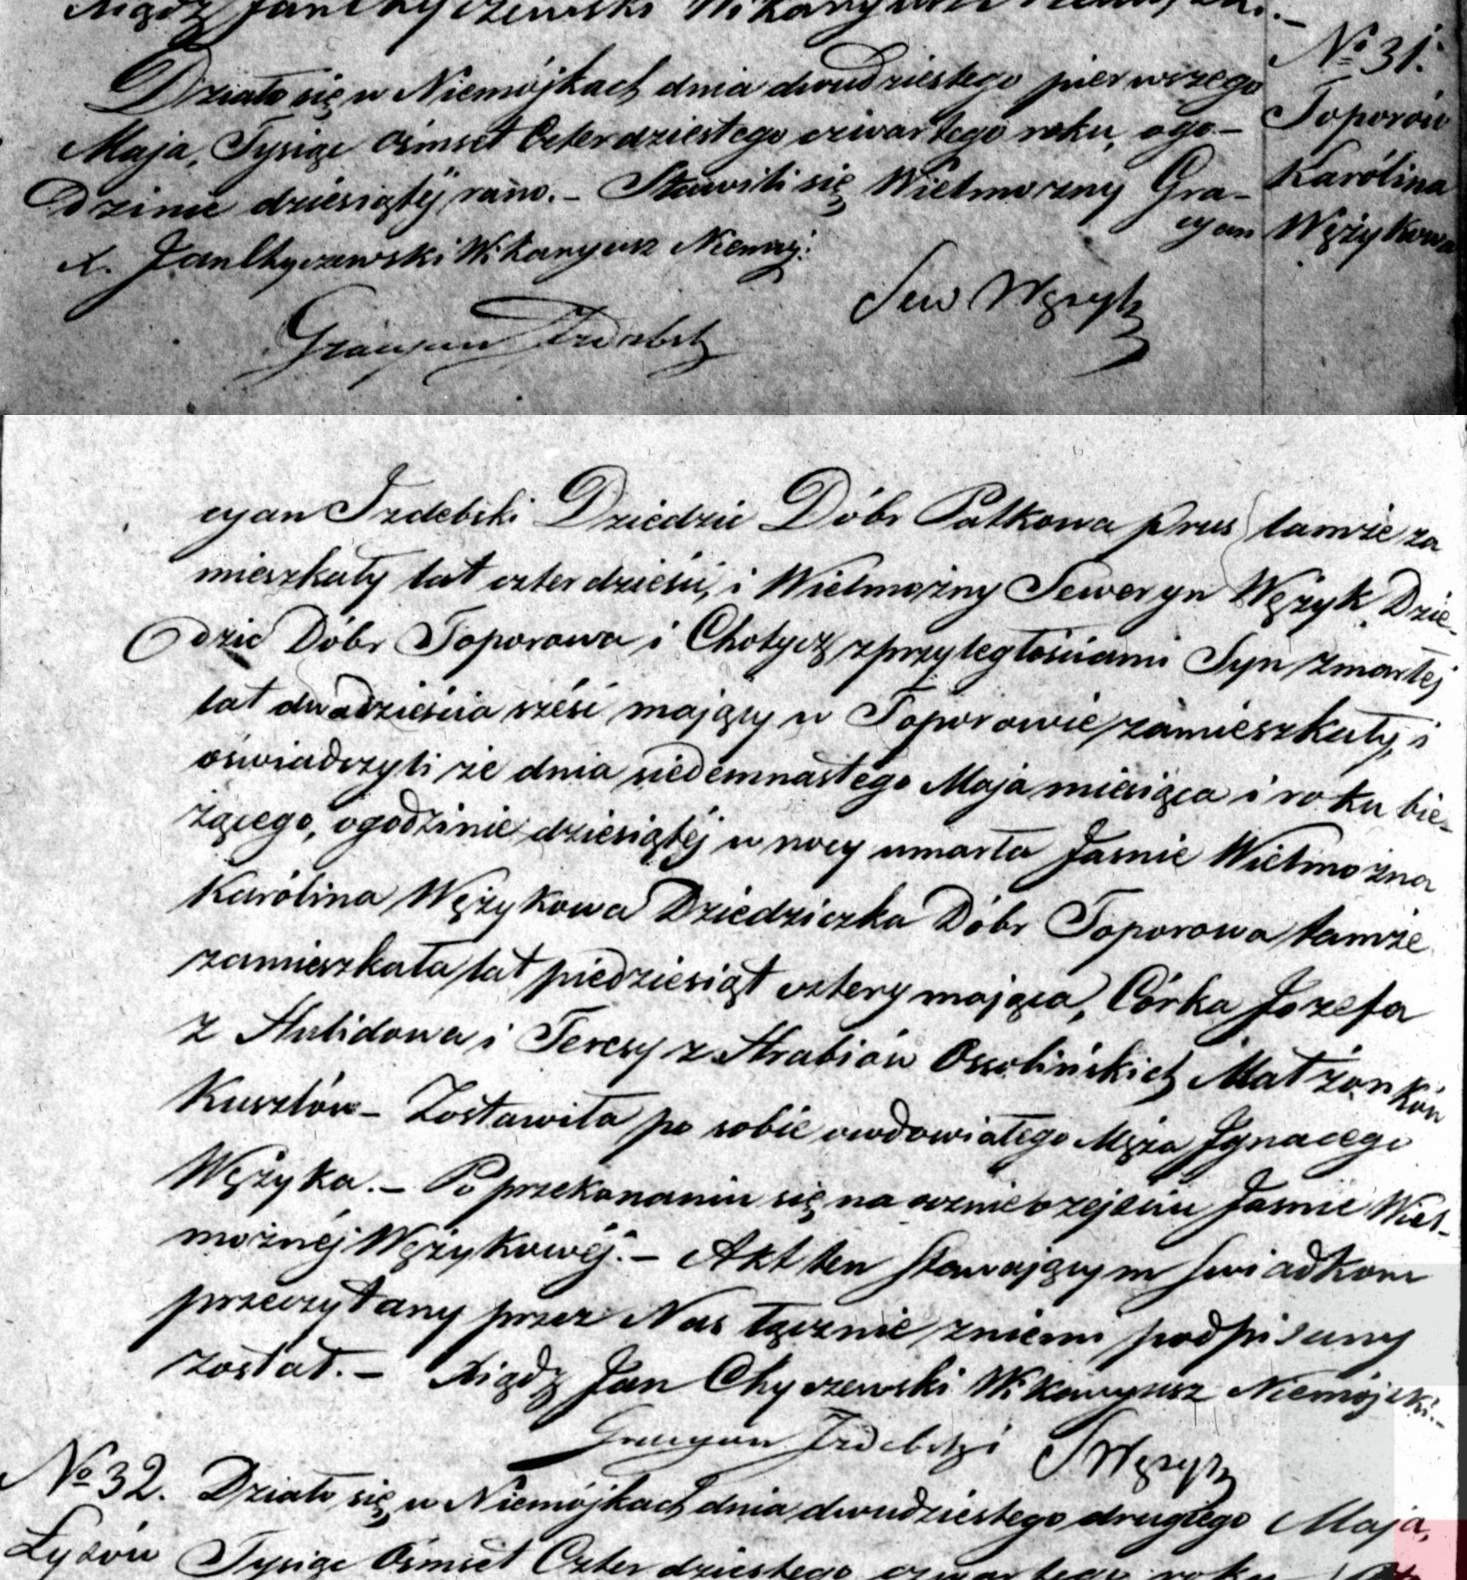 Xiądz Jan Chyczewski Wikaryusz
Działo się w Niemójkach dnia dwudziestego pierwszego
Maja, Tysiąc Ósmset Czterdziestego czwartego roku, ogo-
dzinie dziesiątéj rano.- Stawili się Wielmożny Gra-
cyan
№ 31.
Toporów
Karólina
Wężykowa
X. Jan Chyczewski Wikaryusz Niemoj:
Sew Wężyk
Gracyan Izdebski
cyan Izdebski Dziedzic Dóbr Patkowa prus tamże za
mieszkały lat czterdzieści, i Wielmożny Seweryn Wężyk Dzie-
dzic Dóbr Toporowa i Chotycz z przyległościami Syn zmarłej
lat dwadzieścia sześć mający w Toporowie zamieszkały, i
oświadczyli że dnia siedemnastego Maja miesiąca i roku bie-
żącego, ogodzinie dziesiątéj w nocy umarła Jaśnie Wielmożna
Karólina Wężykowa Dziedziczka Dóbr Toporowa tamże
zamieszkała lat piedziesiąt cztery mająca, Córka Jozefa
z i Teresy z Hrabiów Ossolińskich Małżonków
Kuszlów- Zostawiła po sobie owdowiałego Męża Ignacego
Wężyka.- Po przekonaniu się naocznie o zejściu Jaśnie Wiel-
możnéj Wężykowéj.- Akt ten stawającym świadkom
przeczytany przez Nas łącznie zniemi podpisany
został.- Xiądz Jan Chyczewski Wikaryusz Niemójski.-
Gracyan Izdebski S Wężyk
№ 32. Działo się w Niemójkach dnia dwudziestego drugiego Maja,
Łysów Tysiąc Ósmset Czterdziestego czwartego roku